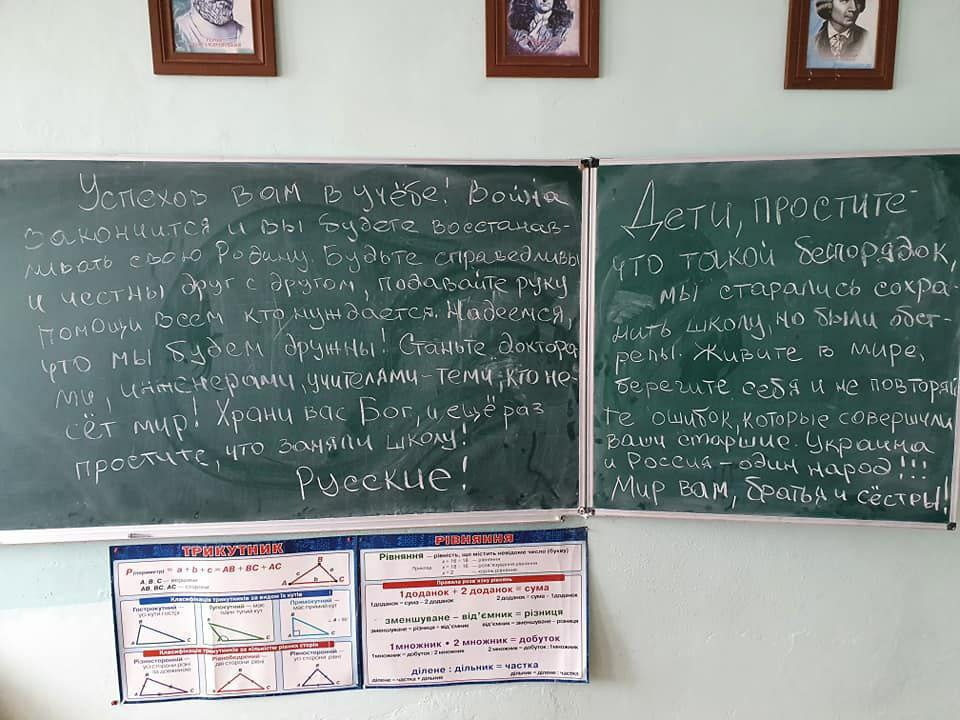 Успехов вам в учёбе! Война
закончится и вы будете восстанав-
ливать свою Родину. Будьте справедливы
и честны друг с другом, подавайте руку
помощи всем кто нуждается. Надеемся,
что мы будем дружны! Станьте доктора-
ми, инженерами, учителями-теми, кто не-
сёт мир! Храни вас Бог, и ещё раз
простите, что заняли школу!
Русские!
Дети, простите
что такой беспорядок,
мы старались сохра-
нить школу, но были обст-
релы. Живите в мире,
берегите себя и не повторяй
те ошибок, которые совершили
ваши старшие. Украина
и Россия - один народ!!!
Мир вам, братья и сёстры!
ТРИКУТНИК
P(периметр) = a + b + c = AB + BC + AC
A, B, C — вершини
AB, BC, AC — сторони
B
a
c
A
b
C
Класифікація трикутників за видом їх кутів
Гострокутний —
усі кути гострі
Тупокутний — має
один тупий кут
Прямокутний —
має прямий кут
Класифікація трикутників за кількістю рівних сторін
Різносторонній —
усі сторони різні
за довжиною
Рівнобедрений —
дві сторони рівні
Рівносторонній —
усі сторони рівні
РІВНЯННЯ
Рівняння — рівність, що містить невідоме число (букву)
Правила розв'язку рівнянь
1доданок + 2 доданок = сума
1доданок = сума – 2 доданок
2 доданок = сума – 1доданок
зменшуване – від'ємник = різниця
зменшуване = різниця + від'ємник
від'ємник = зменшуване – різниця
1множник • 2 множник = добуток
1множник = добуток : 2 множник
2 множник = добуток : 1множник
ділене : дільник = частка
ділене = частка • дільник
дільник = ділене : частка